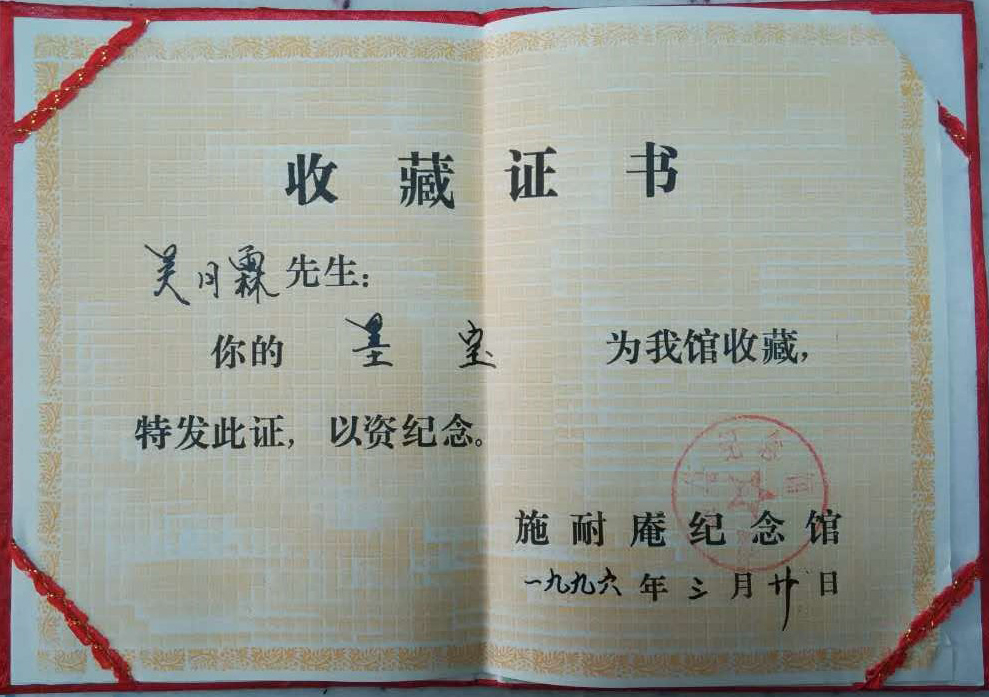 收藏证书
吴月霖先生：
你的 墨宝 为我馆收藏，
特发此证，以资纪念。
施耐庵纪念馆
一九九六年三月廿日